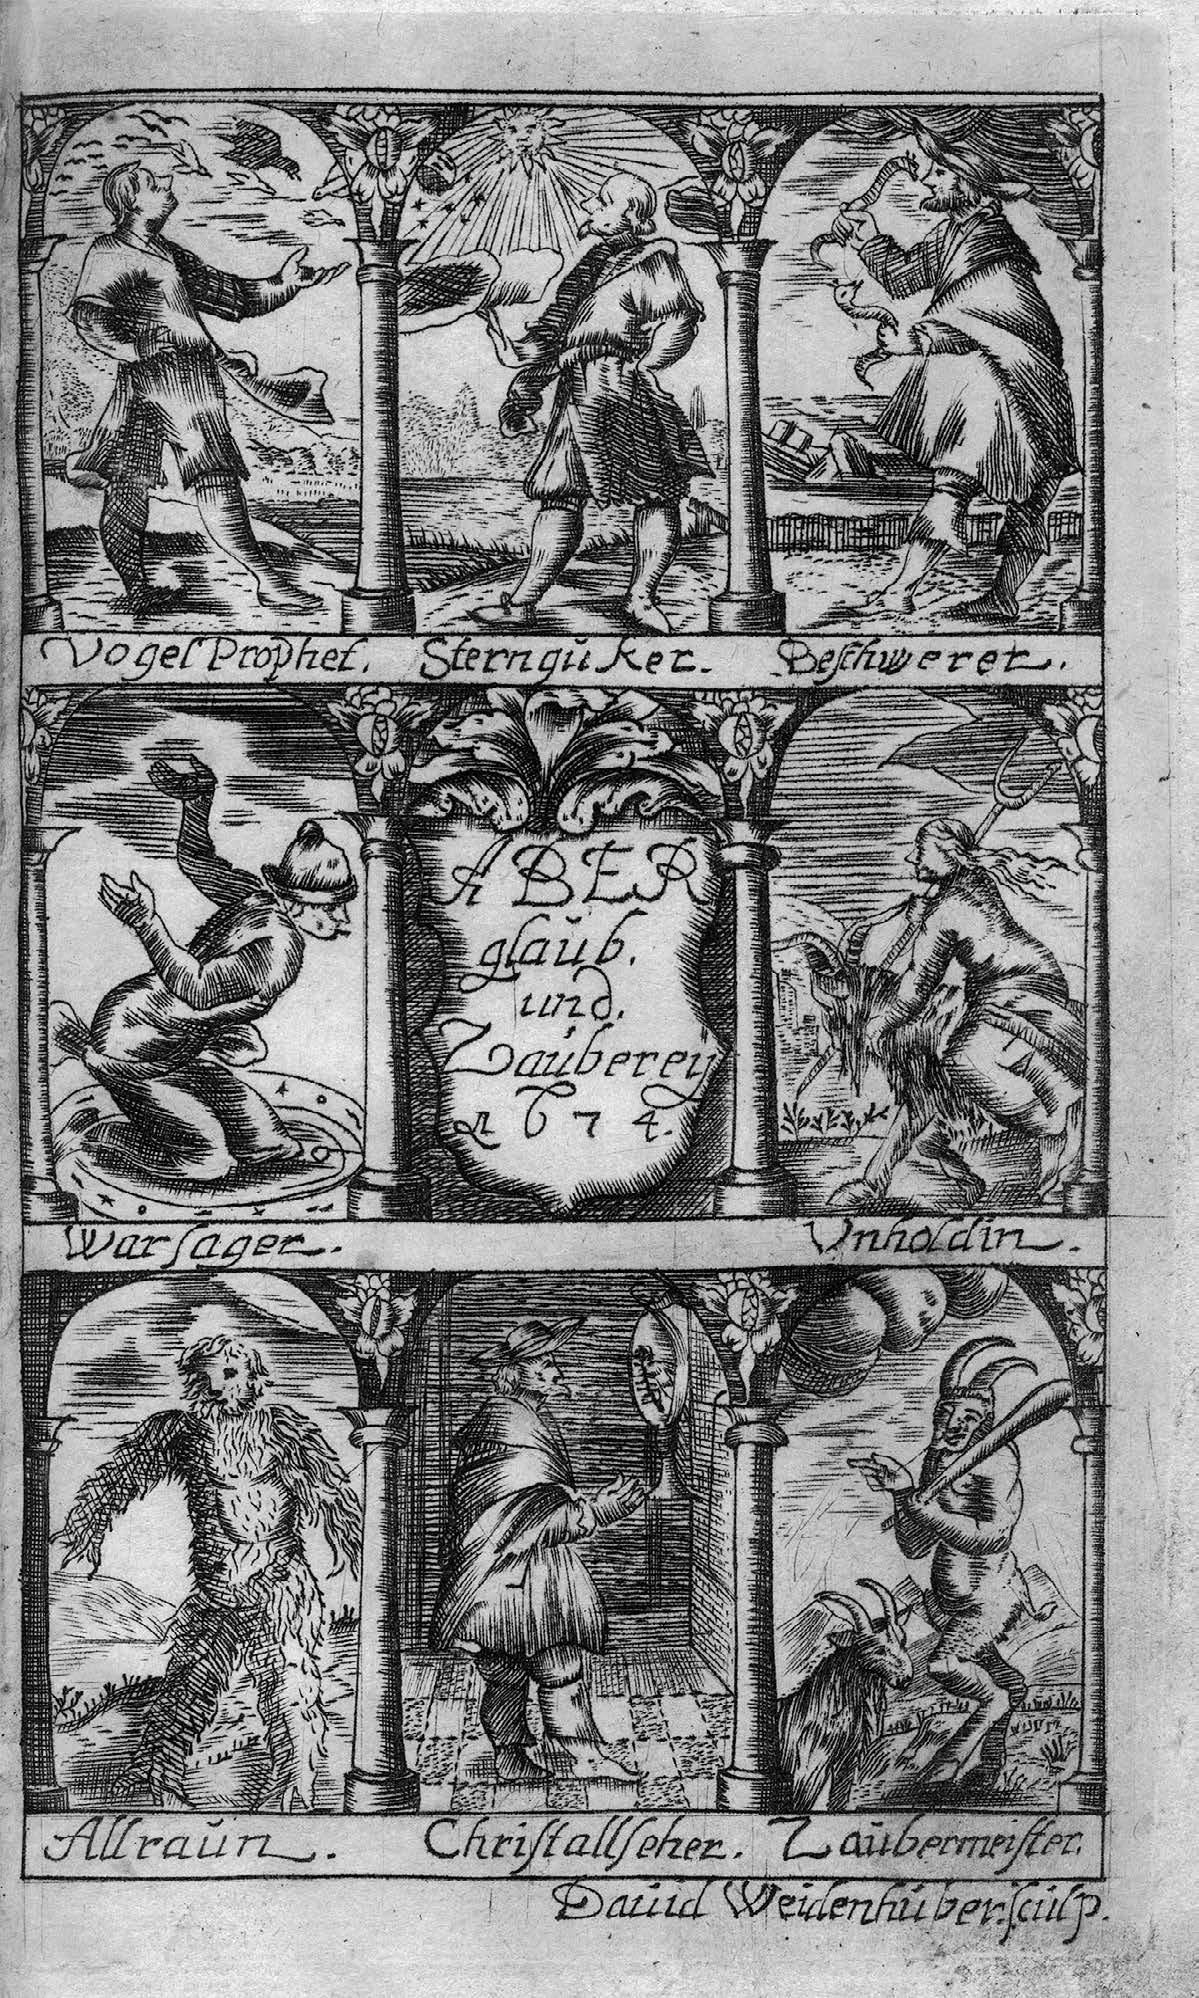 Vogel Prophet. Sterngüker. Beschwerer.
ABER
glaŭb.
ŭnd.
Zaŭbereÿ
1674.
Warsager. Vnholdin.
Allraŭn. Christallseher. Zaŭbermeister.
Dauid Weidenhŭber. scŭlp.